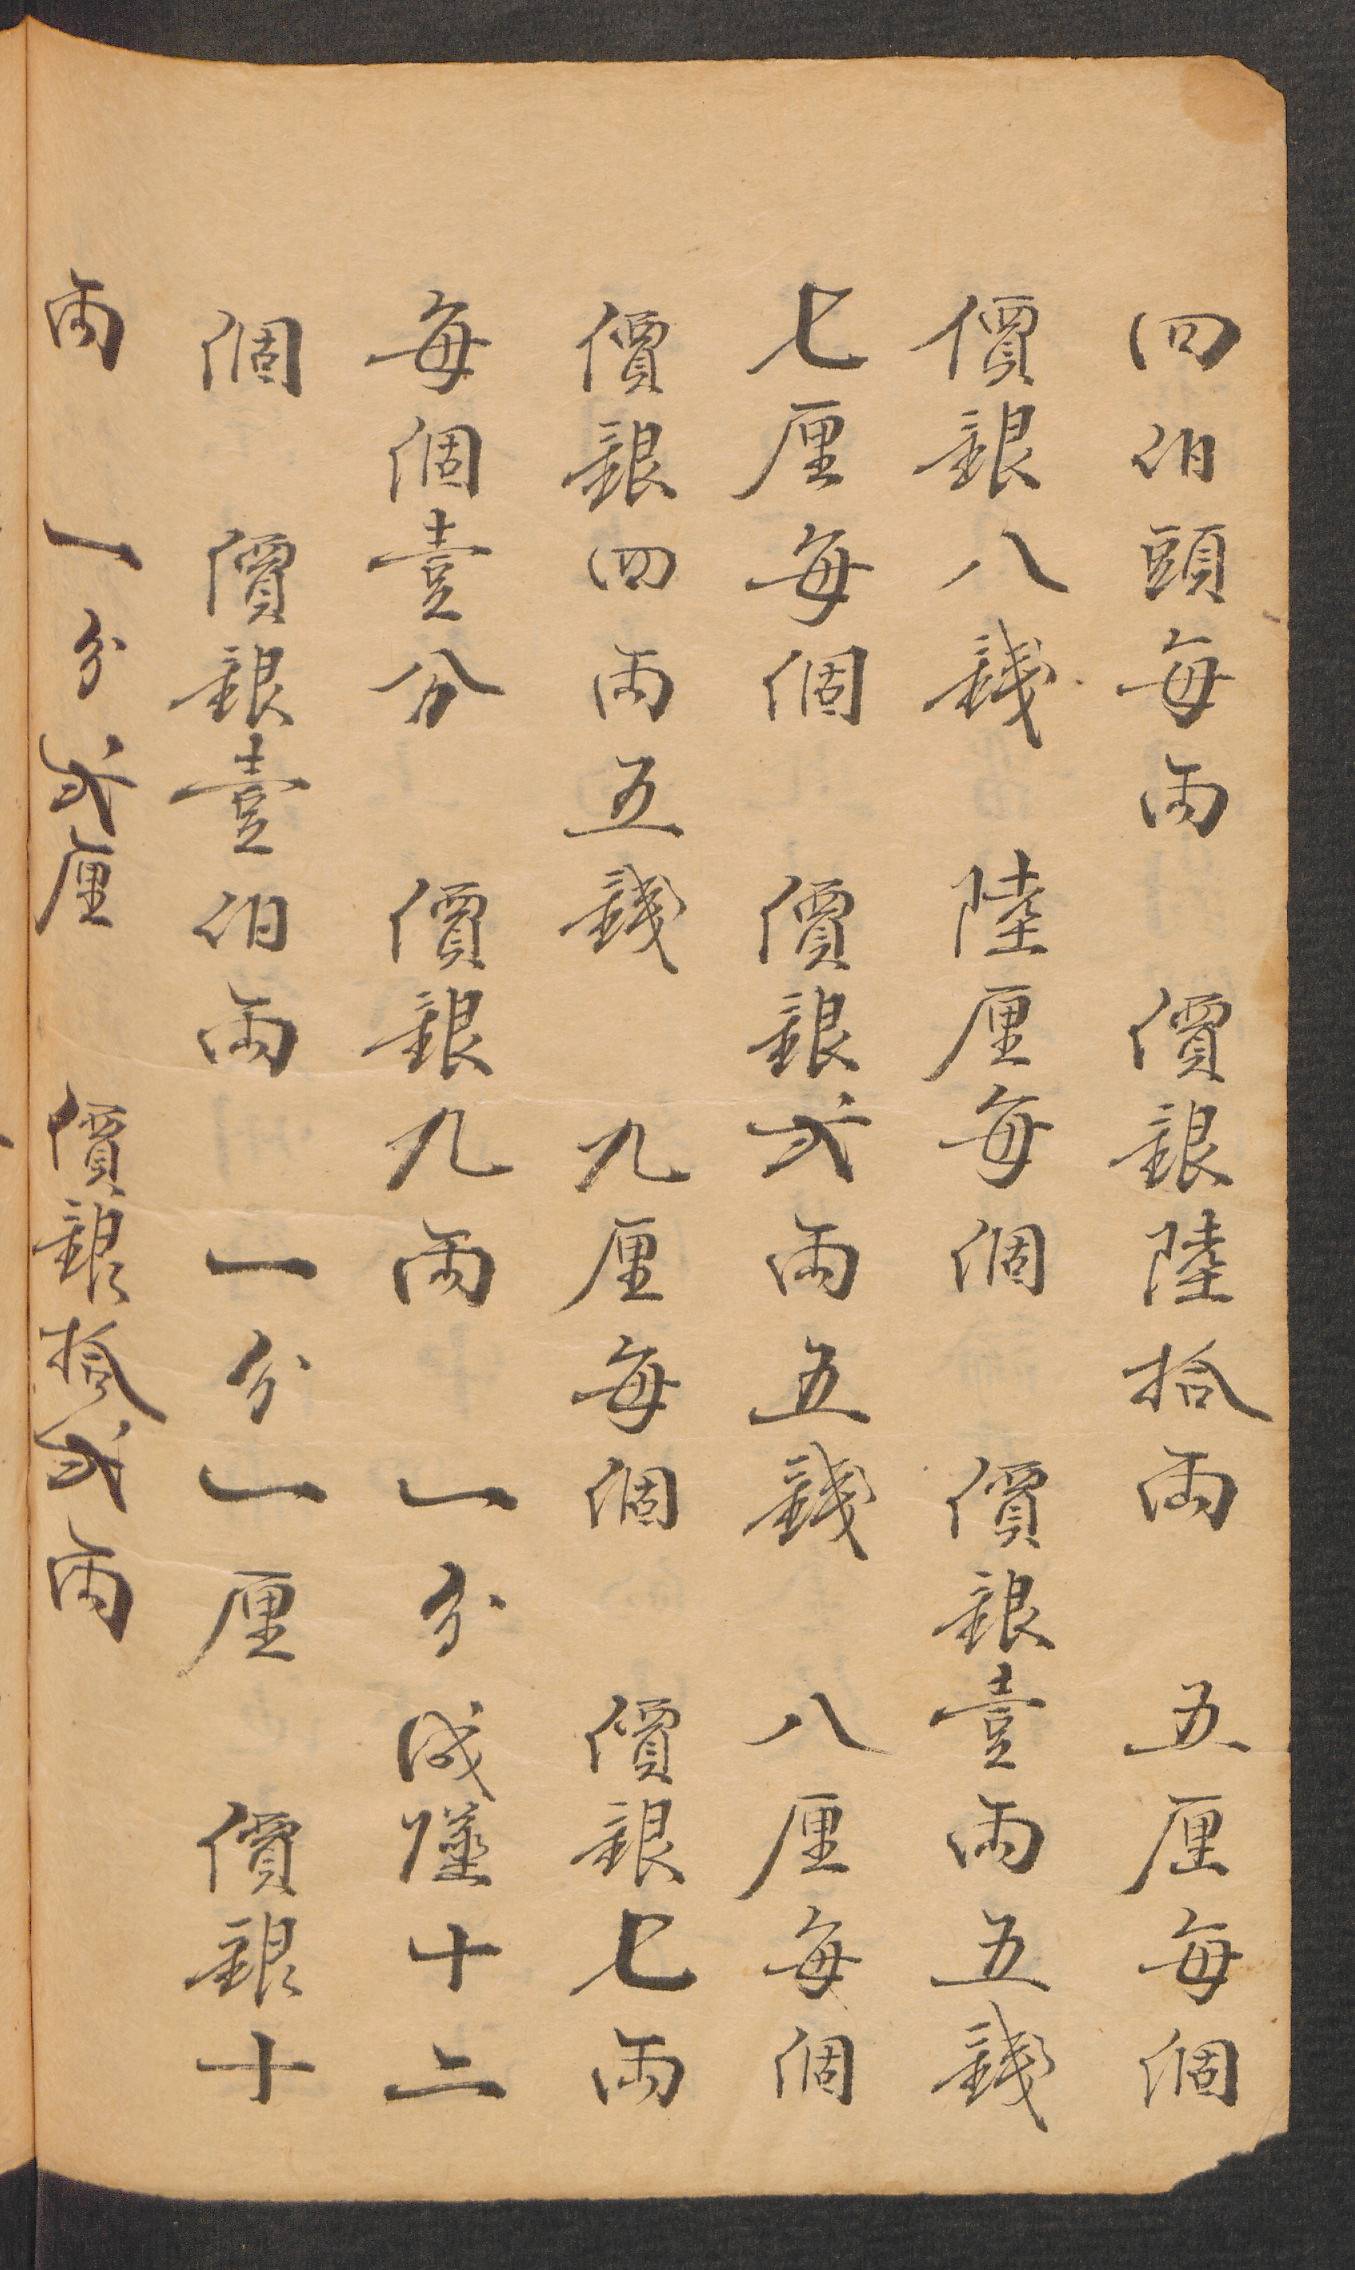 四佰頭每両　價銀陸拾両　五厘每個
價銀八錢　陸厘每個　價銀壹両五錢
七厘每個　價銀弍両五錢　八厘每個
價銀四両五錢　九厘每個　價銀七両
每個壹分　價銀九両　一分成墜十二
個　價銀壹佰両　一分一厘　價銀十
両　一分弍厘　價銀拾弍両